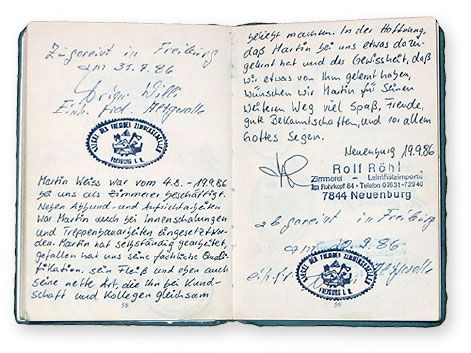 Zugereist in Freiburg
am 31.7.86
Willi
Einh. frd.
GESELLE DER FREMDEN ZIMMERGESELLEN
FREIBURG I. B.
Martin Weiss war vom 4.8. - 19.9.86
bei uns als Zimmerer beschäftigt.
Neben Abbund- und Aufrichtarbeiten
war Martin auch bei Innenschalungen
und Treppenbauarbeiten eingesetzt wor-
den. Martin hat selbständig gearbeitet,
gefallen hat uns seine fachliche Quali-
fikation, sein Fleiß und eben auch
seine nette Art, die Ihn bei Kund-
schaft und Kollegen gleichsam
58
beliebt machten. In der Hoffnung,
daß Martin bei uns etwas dazu-
gelernt hat und der Gewissheit, daß
wir etwas von Ihm gelernt haben,
wünschen wir Martin für Seinen
weiteren Weg viel Spaß, Freude,
gute Bekanntschaften, und vor allem
Gottes Segen.
Neuenburg 19.9.86
Rolf Röhl
Zimmerei - Leimholzimporte
Im Rohrkopf 84 · Telefon 07631-72940
7844 Neuenburg
abgereist in Freiburg
am 9.86
FREIBURG I. B.
59